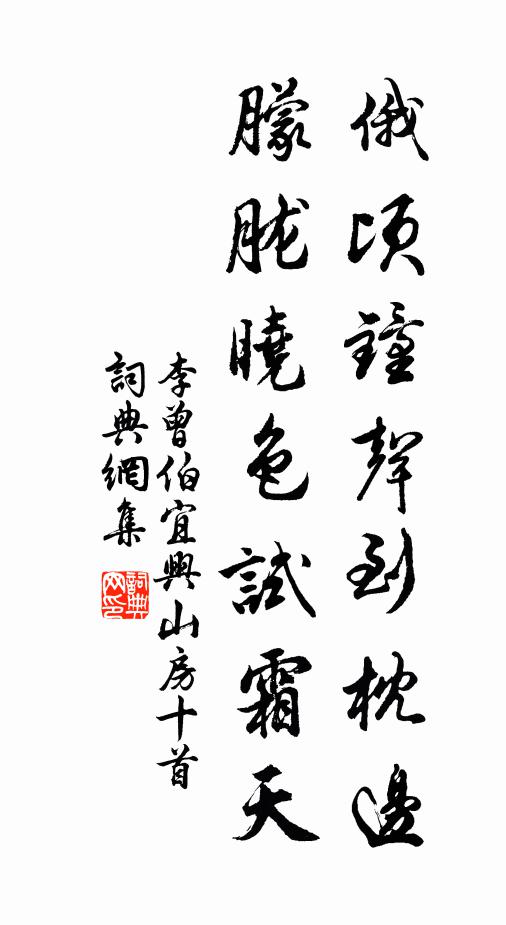 俄頃鐘聲到枕邊
朦朧曉色試霜天
李曾伯宜興山房十首
詞典網集
詞典网印